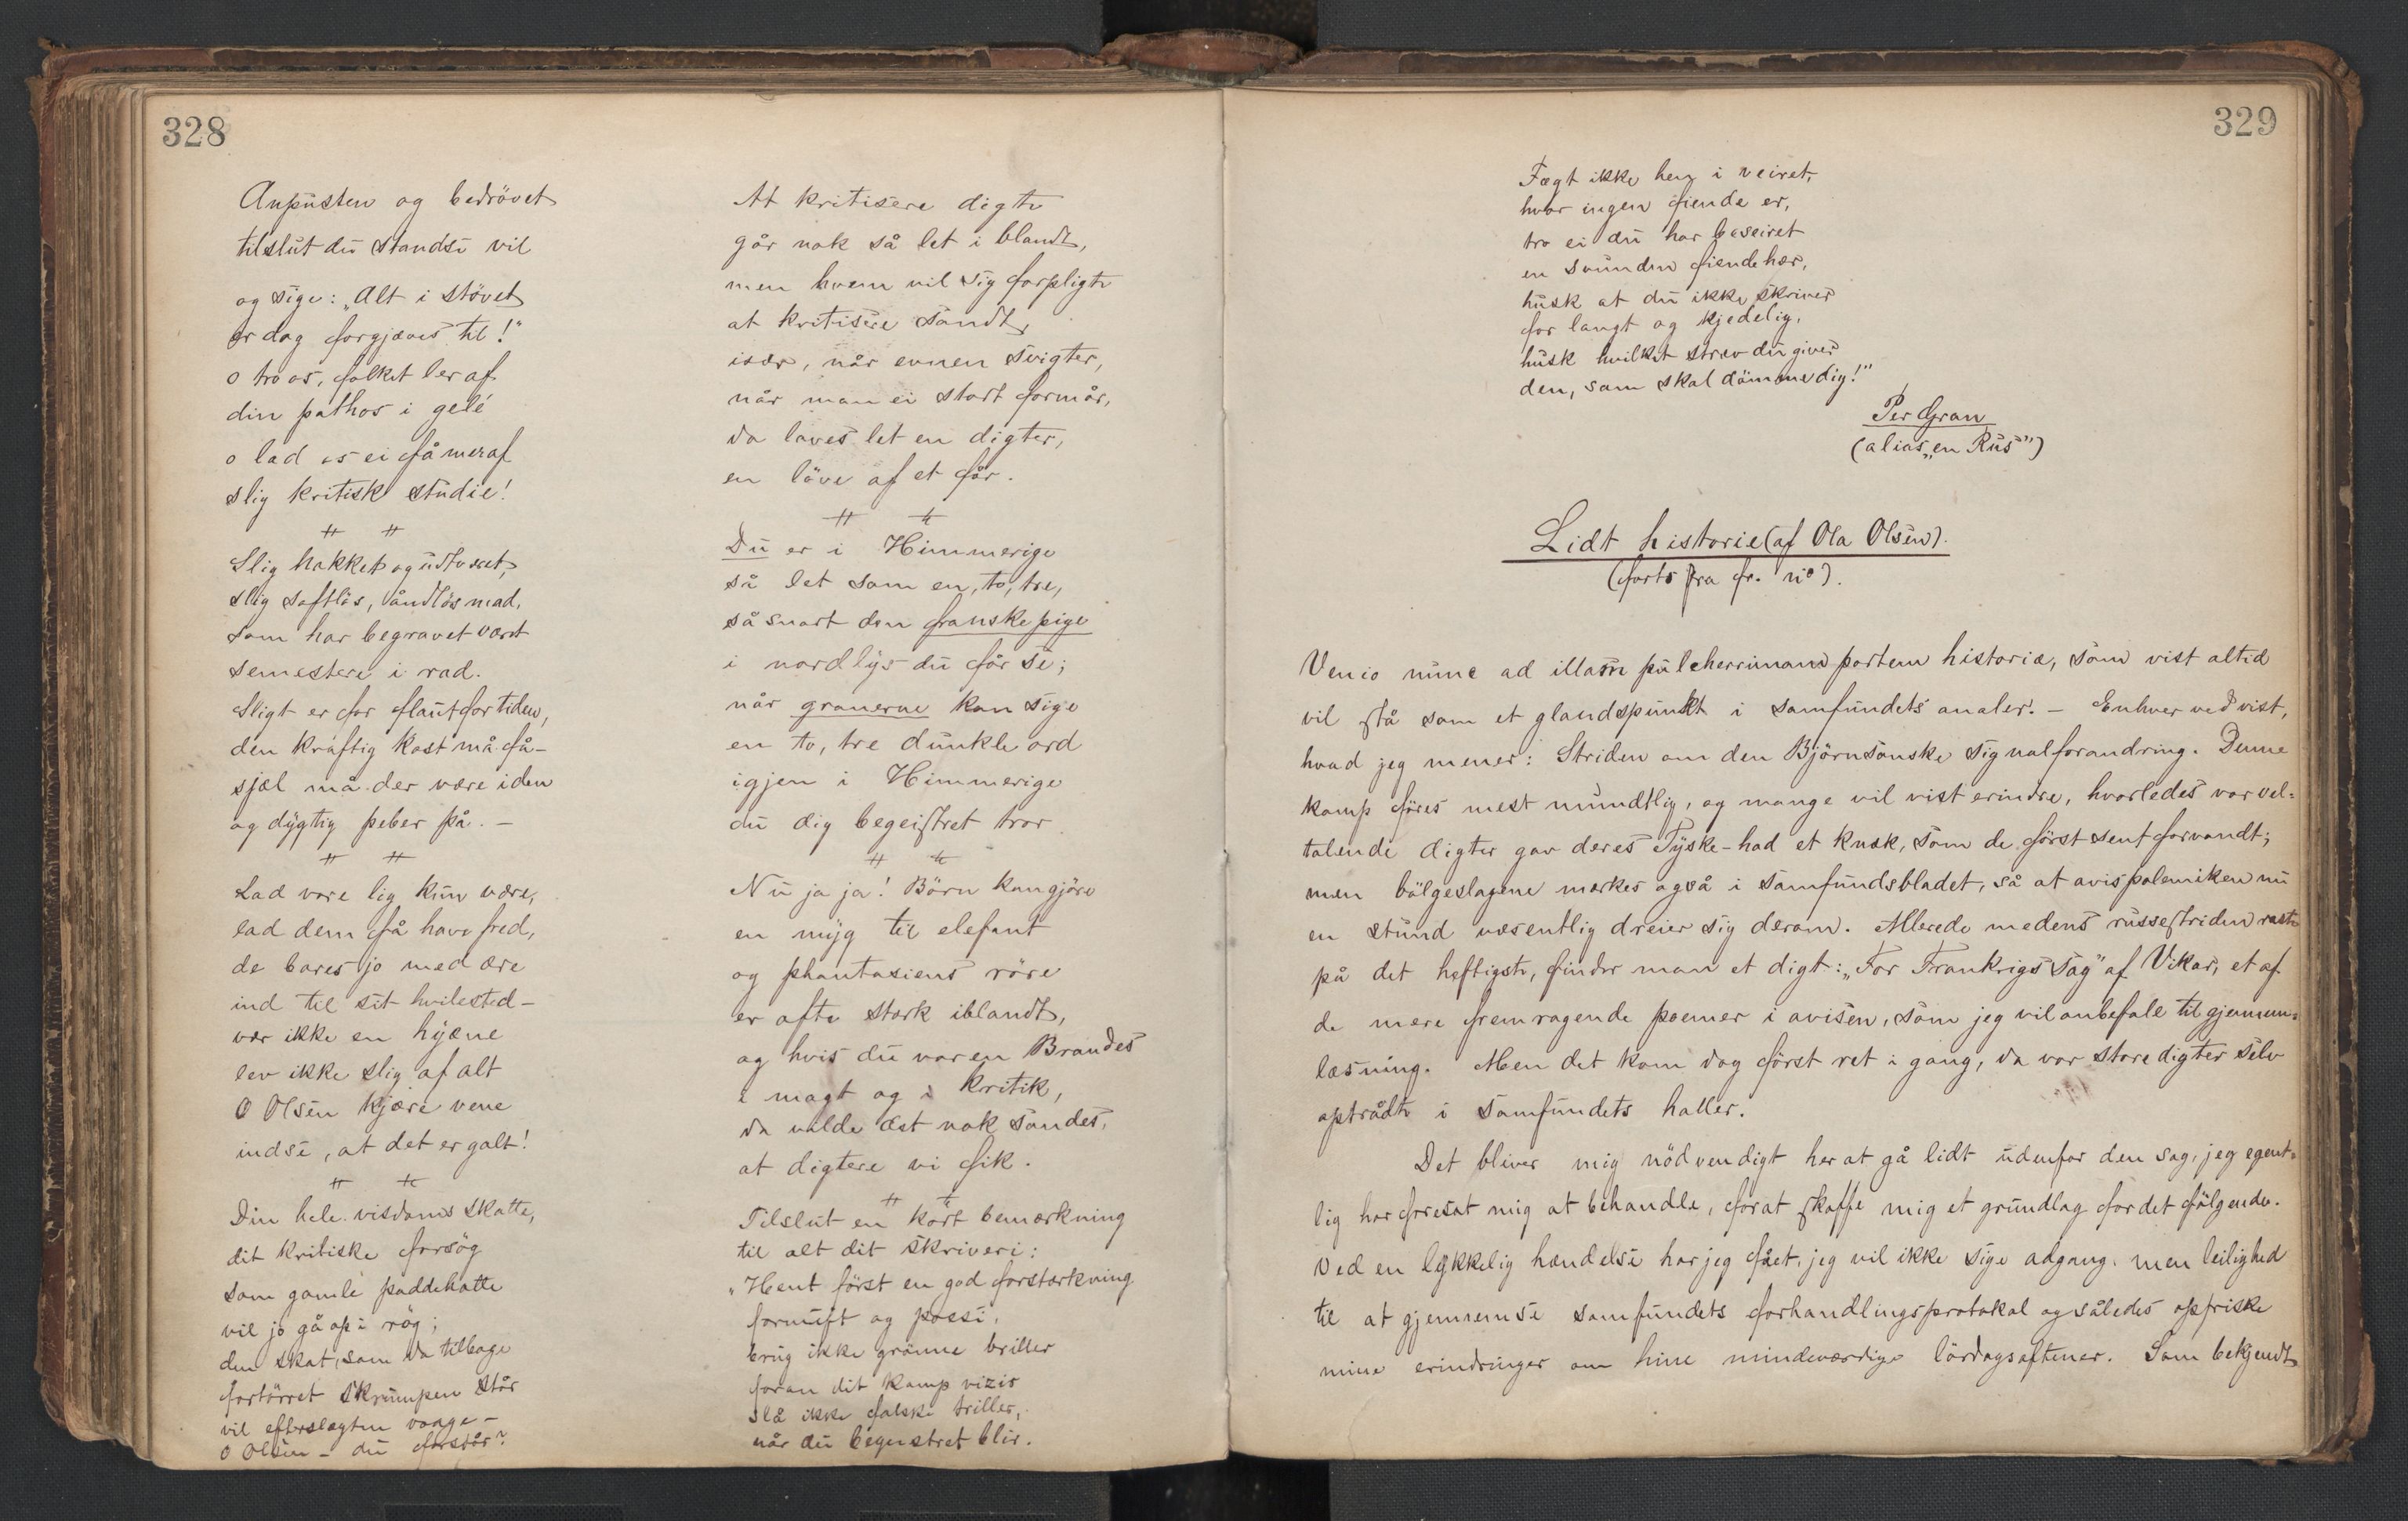 328
Anpusten og bedrövet
tilslut du standse vil
og sige: „Alt i stövet
er dog forgjæves til!"
o tro os, folket ler af
din pathos i gelé
o lad os ei få mer af
slig kritisk studie!
# #
Slig hakket og udtværet,
slig saftlös, åndlös mad,
som har begravet været
semestere i rad.
Sligt er for flaut for tiden,
den kraftig kost må få –
sjæl må der være i den
og dygtig peber på. –
# #
Lad vore lig kun være,
lad dem få have fred,
de bares jo med ære
ind til sit hvilested –
vær ikke en hyæne
lev ikke slig af alt
O Olsen kjære vene
indse, at det er galt!
# #
Din hele visdoms skatte,
dit kritiske forsög
som gamle paddehatte
vil jo gå op i røg;
den skat, som da tilbage
fortörret skrumpen står
vil efterslægten vrage –
O Olsen – du forstår?
At kritisere digte
går nok så let i blandt,
men hvem vil sig forpligte
at kritisere sandt,
især, når evnen svigter,
når man ei stort formår,
da laves let en digter,
en löve af et får.
# #
Du er i Himmerige
så let som en, to, tre,
så snart den franske pige
i nordlys du får se;
når granerne kan sige
en to, tre dunkle ord
igjen i Himmerige
du dig begeistret tror
# #
Nu ja ja! Börn kan gjöre
en myg til elefant
og phantasiens röre
er ofte stærk iblandt,
og hvis du var en Brandes
i magt og i kritik,
da vilde det nok sandes,
at digtere vi fik.
# #
Tilslut en kort bemærkning
til alt dit skriveri:
„Hent först en god forstærkning
fornuft og poesi,
brug ikke grönne briller
foran dit kampvizir
slå ikke falske triller,
når du begeistret blir.
329
Fægt ikke hen i veiret,
hvor ingen fiende er,
tro ei du har beseiret
en svunden fiendehær,
husk at du ikke skriver
for langt og kjedelig,
husk hvilket stræv du giver
den, som skal dömme dig!"
Per Gran
(alias „en Rus")
Lidt historie (af Ola Olsen).
(forts fra fr. no).
Venio nunc ad illam pulcherrimam partem historiæ, som vist altid
vil stå som et glandspunkt i samfundets analer. – Enhver ved vist,
hvad jeg mener: Striden om den Björnsonske signalforandring. Denne
kamp föres mest mundtlig, og mange vil vist erindre, hvorledes vor vel-
talende digter gav deres Tyske-had et knæk, som de först sent forvandt;
men bölgeslagene mærkes også i samfundsbladet, så at avispolemiken nu
en stund væsentlig dreier sig derom. Allerede medens russestriden raste
på det heftigste, finder man et digt: „For Frankrigs Sag" af Vikar, et af
de mere fremragende poemer i avisen, som jeg vil anbefale til gjennem-
læsning. Men det kom dog först ret i gang, da vor store digter selv
optrådte i samfundets haller.
Det bliver mig nödvendigt her at gå lidt udenfor den sag, jeg egent-
lig har foresat mig at behandle, forat skaffe mig et grundlag for det fölgende.
Ved en lykkelig hændelse har jeg fået, jeg vil ikke sige adgang, men leilighed
til at gjennemse samfundets forhandlingsprotokol og således opfriske
mine erindringer om hine mindeværdige lördagsaftener. Som bekjendt